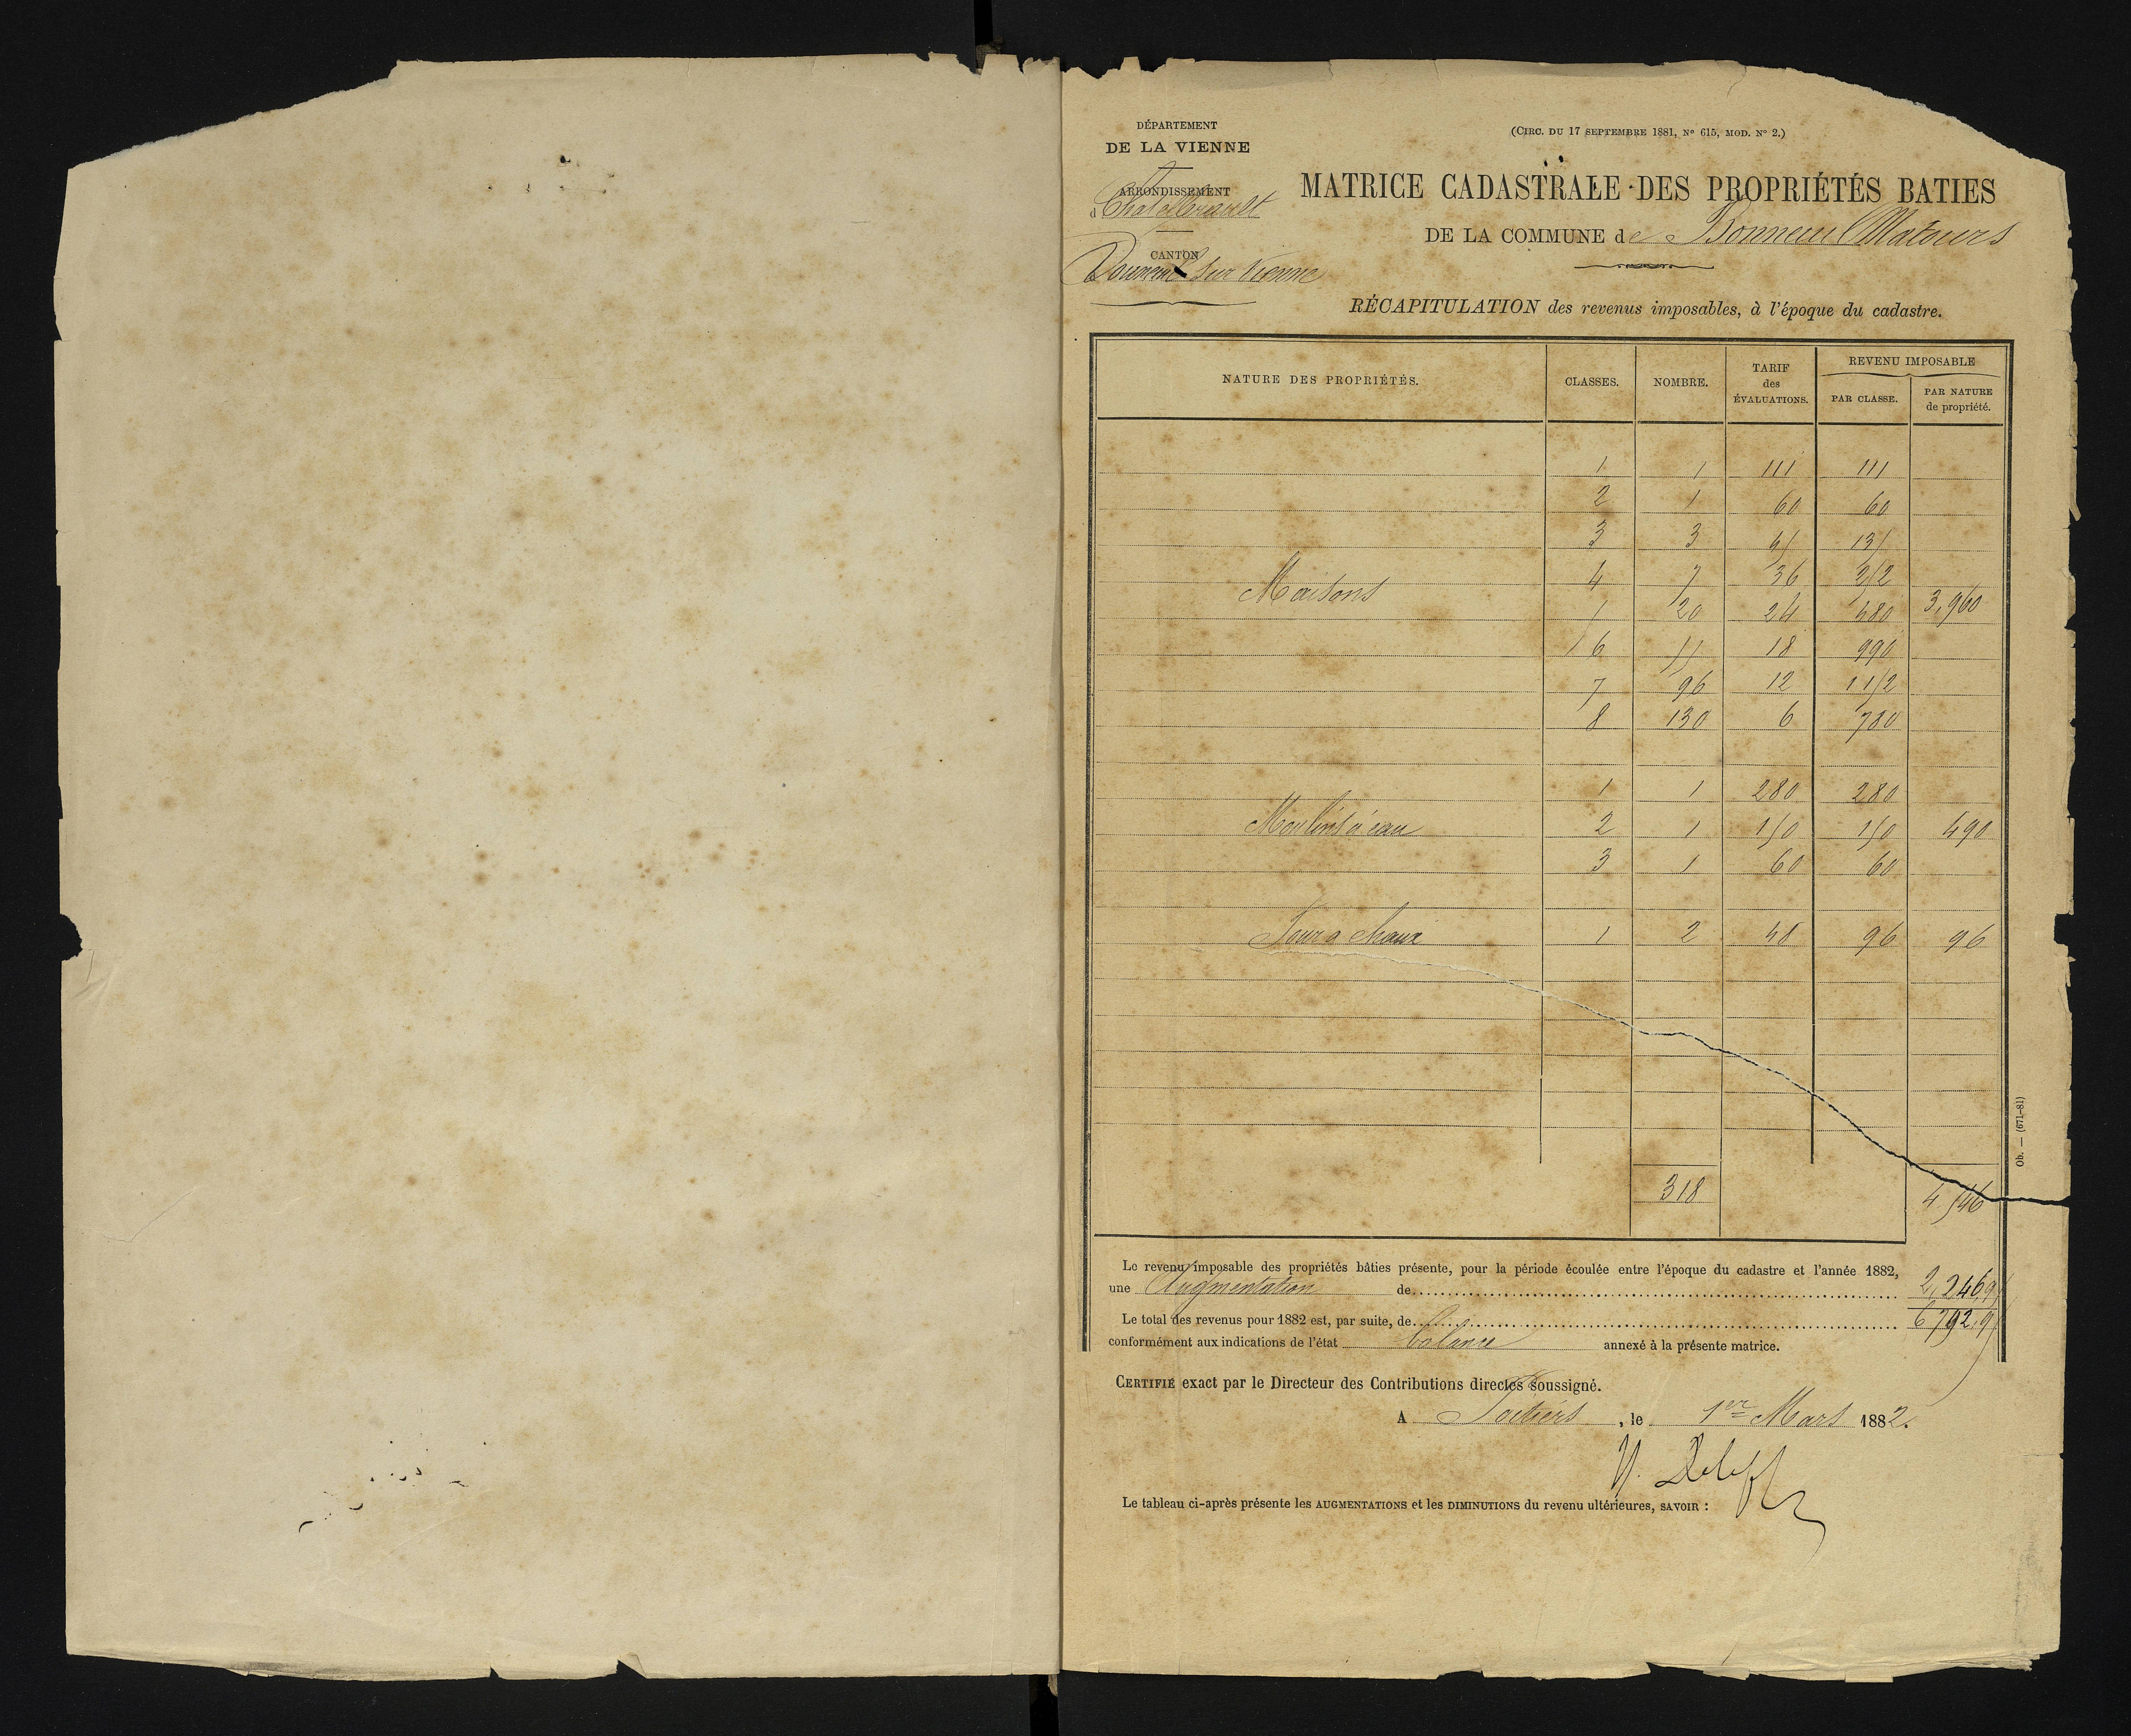 DÉPARTEMENT
DE LA VIENNE
ARRONDISSEMENT
d Chatellerault
CANTON
Vouneuil sur Vienne
(CIRC. DU 17 SEPTEMBRE 1881, N° 615, MOD. N° 2.)
MATRICE CADASTRALE DES PROPRIÉTÉS BATIES
DE LA COMMUNE de Bonneuil Matours
RÉCAPITULATION des revenus imposables, à l'époque du cadastre.
NATURE DES PROPRIÉTÉS. CLASSES. NOMBRE. TARIF des ÉVALUATIONS. REVENU IMPOSABLE
PAR CLASSE. PAR NATURE de propriété.
1 1 111 111
2 1 60 60
3 3 45 135
Maisons 4 7 36 252
5 20 24 480 3,960
6 55 18 990
7 96 12 1152
8 130 6 780
1 1 280 280
Moulins à eau 2 1 150 150 490
3 1 60 60
Four a chaux 1 2 48 96 96
318 4.546
Le revenu imposable des propriétés bâties présente, pour la période écoulée entre l'époque du cadastre et l'année 1882,
une Augmentation de 2,246,95
Le total des revenus pour 1882 est, par suite, de 6792,95
conformément aux indications de l'état balance annexé à la présente matrice.
CERTIFIÉ exact par le Directeur des Contributions directes soussigné.
A Poitiers, le 1er Mars 1882.
Le tableau ci-après présente les AUGMENTATIONS et les DIMINUTIONS du revenu ultérieures, SAVOIR :
Ob. — (671-81)